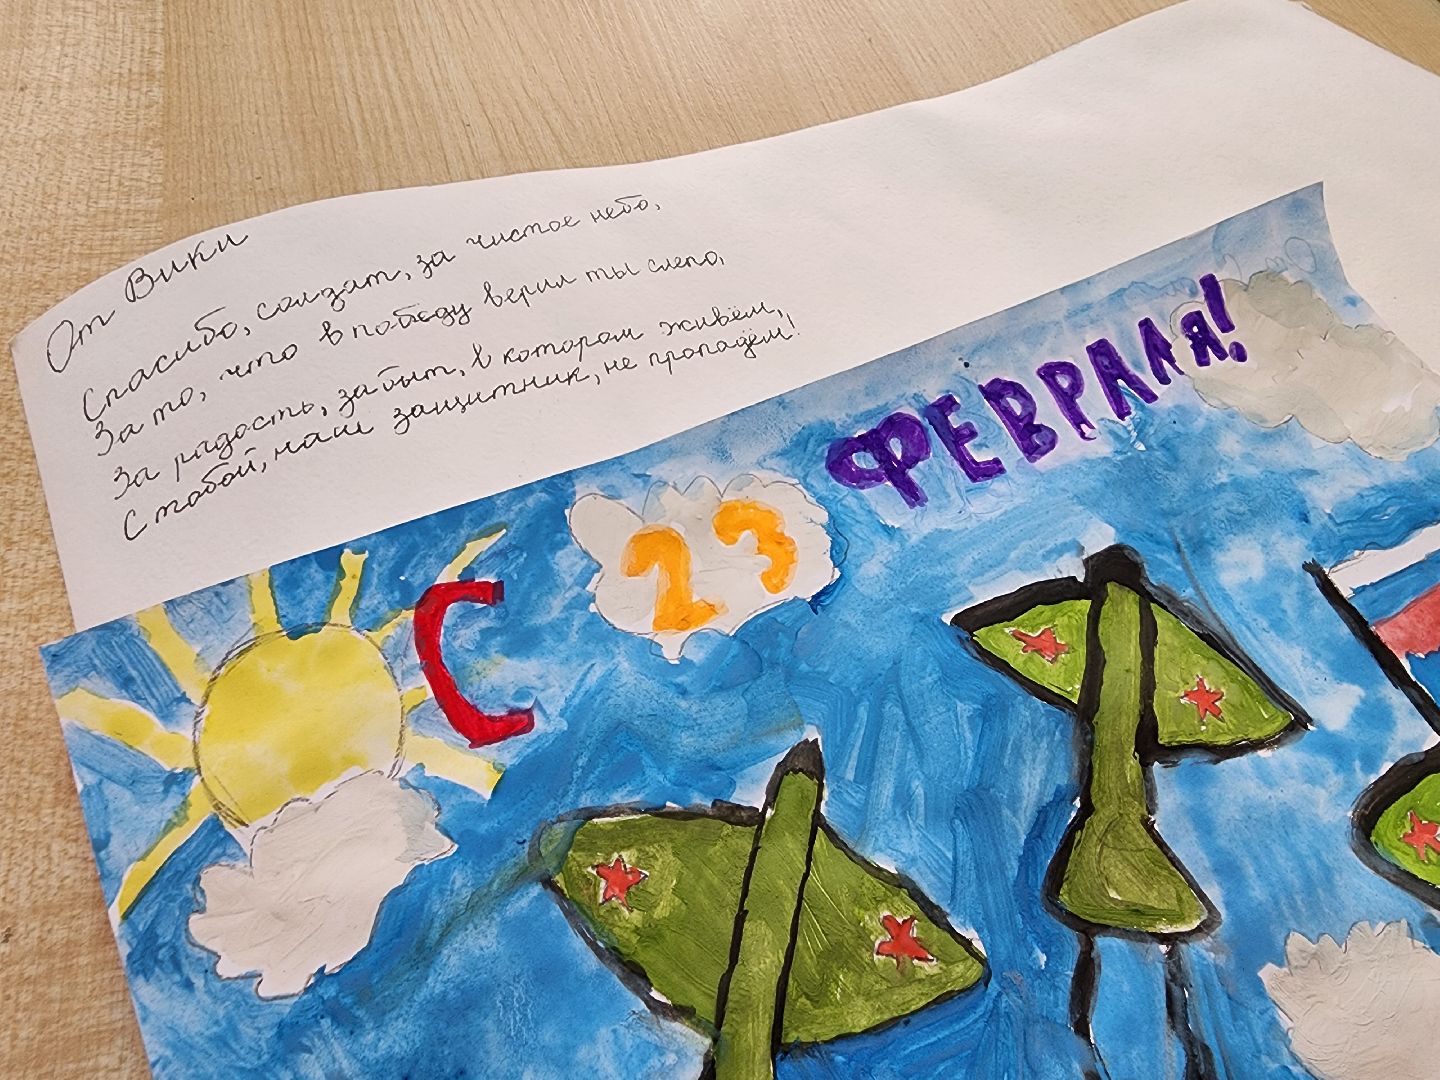 От Вики
Спасибо, солдат, за чистое небо,
За то, что в победу верил ты слепо,
За радость, за быт, в котором живём,
С тобой, наш защитник, не пропадём!
С 23 ФЕВРАЛЯ!